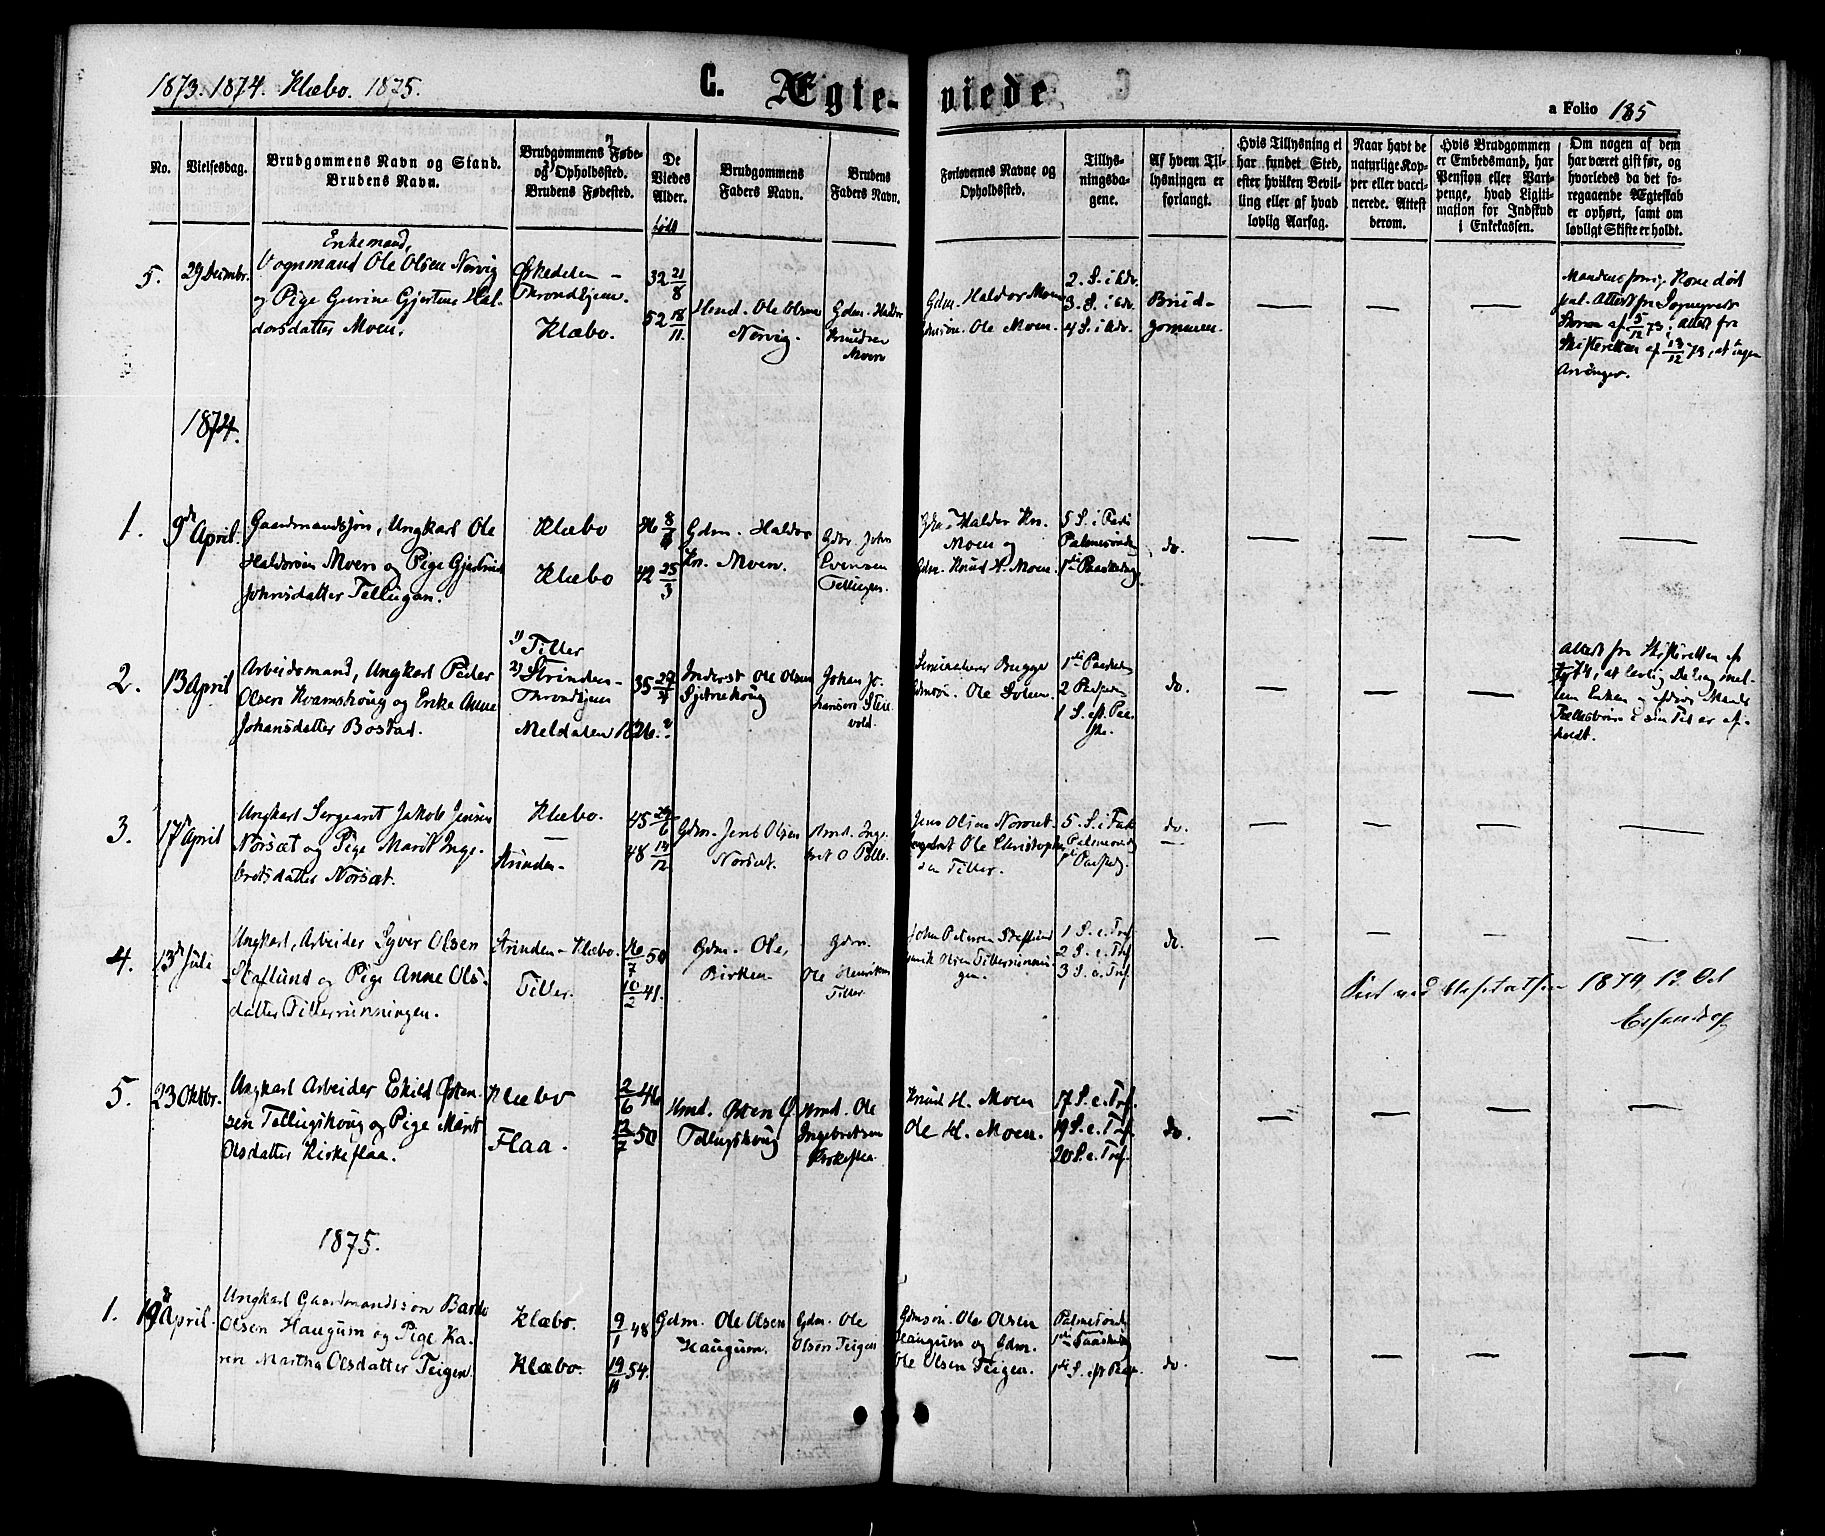 1873. 1874. Klæbo. 1875.
C. Ægte-
viede
a Folio 185
No.
Vielsesdag.
Brudgommens Navn og Stand.
Brudens Navn.
Brudgommens Føde-
og Opholdssted.
Brudens Fødested.
De
Viedes
Alder.
født
Brudgommens
Faders Navn.
Brudens
Faders Navn.
Forlovernes Navne og
Opholdssted.
Tillys-
ningsda-
gene.
Af hvem Til-
lysningen er
forlangt.
Hvis Tillysning ei
har fundet Sted,
efter hvilken Bevil-
ling eller af hvad
lovlig Aarsag.
Naar havt de
naturlige Kop-
per eller vacci-
nerede. Attest
derom.
Hvis Brudgommen
er Embedsmand, har
Pension eller Vart-
penge, hvad Ligiti-
mation for Indskud
i Enkekassen.
Om nogen af dem
har været gift før, og
hvorledes da det fo-
regaaende Ægteskab
er ophørt, samt om
lovligt Skifte er holdt.
5.
29 Decmbr.
Enkemand,
Vognmand Ole Olsen Nervig
og Pige Gurine Gjertine Hal-
dorsdatter Moen.
Throndhjem.
Klæbo.
32 21/8
52 18/11
Hmd. Ole Olsen
Nervig.
Gdm. Haldor
Knudsen
Moen
Gdm. Haldor Moen
Gdmsøn. Ole Moen.
2. S. i Adv.
3. S. i Adv.
4 S. i Adv.
Brud-
gommen.
Mandens forrige Kone død
Attest fra Sognepræst
af 5/12 73; Attest fra
Skifteretten af 13/12 73, at ingen
Arvinger.
1874.
1.
9de April.
Gaardmandssøn, Ungkarl Ole
Haldorsen Moen og Pige Gjertrud
Johnsdatter Tellugan.
Klæbo
Klæbo
42 25/3
Gdm. Haldor
Kn. Moen.
Gdm. John
Evensen
Haldor Kn.
Moen og
Gdm. Knud H. Moen.
5 S. i Faste
Palmesøndag
1ste Paaskedag.
do.
2.
13 April
Arbeidsmand, Ungkarl Peder
Olsen Kvamskoug og Enke Anne
Johansdatter Bostad.
1) Tiller
2) Strinden-
Throndhjem
Meldalen
Inderst Ole Olsen
Johan Jo-
hansen
Seminarlærer Brygge
Gdmsøn. Ole Solem.
1ste Paaskedag
2 Paaskedag
1 S. eft. Paa-
ske.
do.
Attest fra Skifteretten af
74, at lovlig Deling mel-
lem Enken og afdøde Mands
Fællesbørn i sin Tid er af-
holdt.
3.
17de April
Ungkarl Sergeant Jakob Jensen
Norsæt og Pige Marit Inge-
bretsdatter Norsæt.
Klæbo.
Strinden-
48 14/12
Gdm. Jens Olsen
Norsæt.
Jens Olsen Norset
Sergeant Ole Christopher-
sen Tiller.
5. S. i Faste
Palmesøndag
1ste Paaskedag.
do.
4.
13de Juli
Ungkarl, Arbeider Syver Olsen
Stoflund og Pige Anne Ols-
datter Tillerrunningen.
Strinden - Klæbo.
Tiller.
16/7 50
10/2 41.
Gdm. Ole,
Birken.
Gdm.
Ole Henriksen
Tiller
1 S. e. Tref.
2 S. e. Tref
3 S. e. Tref.
do.
1874, 12. Oct
5.
23 Oktbr.
Ungkarl Arbeider Eskild Østen-
sen Tellugskoug og Pige Marit
Olsdatter Kirkeflaa.
Klæbo
Flaa.
2/6 46
12/7 50
Hmd. Østen Ø.
Tellugskoug
Hmd. Ole
Ingebretsen
Kirkeflaa
Knud H. Moen
Ole H. Moen.
17 S. e. Tref.
19 S. e. Tref.
20 S. e. Tref.
do.
1875.
1.
19de April.
Ungkarl Gaardmandssøn Bardo
Olsen Haugum og Pige Ka-
ren Martha Olsdatter Teigen.
Klæbo.
Klæbo.
9/1 48
19/11 54.
Gdm. Ole Olsen
Haugum.
Gdm. Ole
Olsen Teigen
Gdmsøn. Ole Olsen
Haugum og Gdm.
Ole Olsen Teigen.
Palmesøndag
1ste Paaskedag
1ste S. eft Paas.
do.